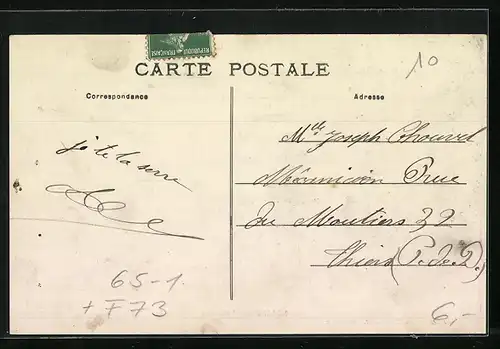 REPUBLIQUE FRANÇAISE
10
CARTE POSTALE
Correspondance
Adresse
Mlle Joseph Chouvel
rue
du Moutiers 32
Thiers (P. de D.)
je te la serre
65-1
+ F73
6,-